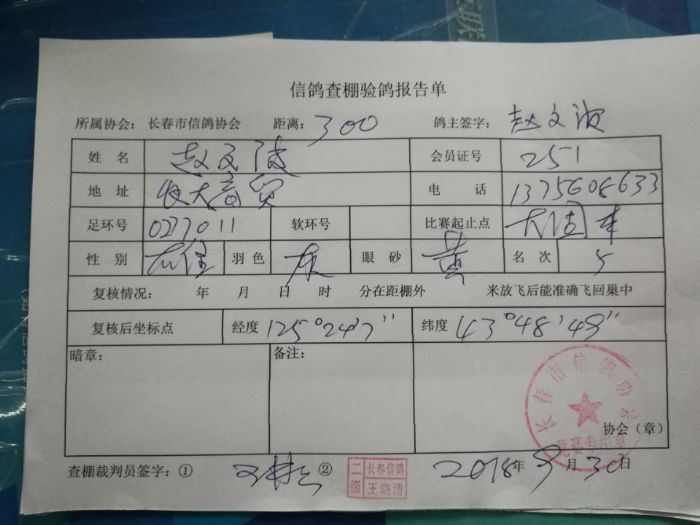 信鸽查棚验鸽报告单
所属协会: 长春市信鸽协会 距离: 300 鸽主签字: 赵文波
姓 名 赵文波 会员证号 251
地 址 电 话
足环号 0277011 软环号 比赛起止点
性 别 羽 色 灰 眼 砂 黄 名 次 5
复核情况: 年 月 日 时 分在距棚外 米放飞后能准确飞回巢中
复核后坐标点 经度 125°24'7" 纬度 43°48'49"
暗章: 备注:
长春市信鸽协会
协会(章)
查棚裁判员签字:① ② 二级 长春信鸽 王晓清 2018年9月30日